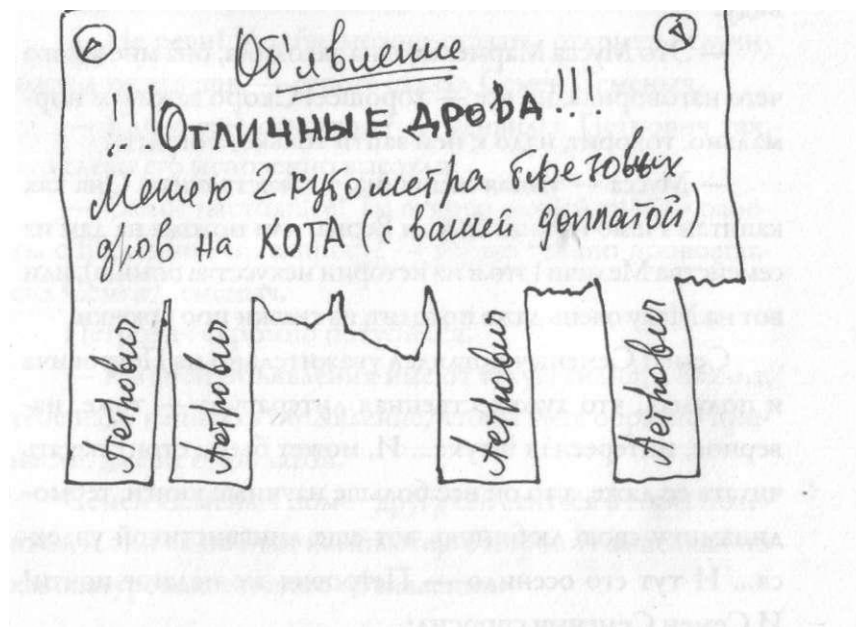 Об'явление
!!!ОТЛИЧНЫЕ ДРОВА!!!
Меняю 2 кубометра березовых
дров на КОТА (с вашей доплатой
Петрович
Петрович
Петрович
Петрович